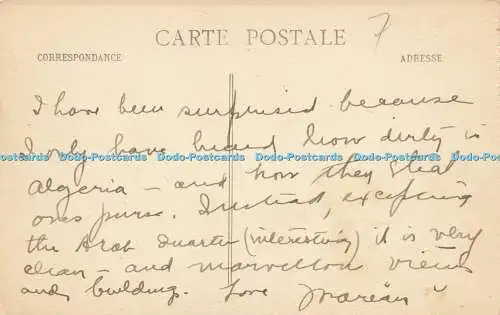 CARTE POSTALE
7
CORRESPONDANCE
ADRESSE
I have been surprised because
I only have heard how dirty is
Dodo-Postcards Dodo-Postcards Dodo-Postcards Dodo-Postcards Dodo-Postcards
Algeria – and how they steal
ones purse. Instead, excepting
the Arab Quarter (interesting) it is very
clean – and marvellous views
and buildings. Love Marian